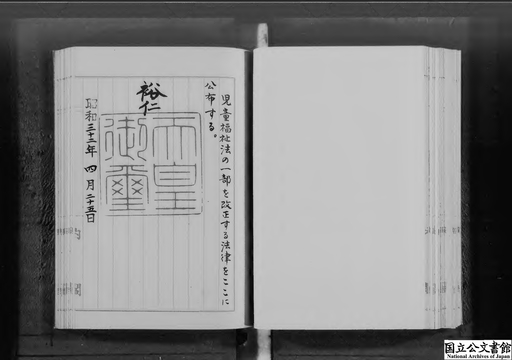 児童福祉法の一部を改正する法律をここに
公布する。
裕仁
天皇
御璽
昭和三十三年四月二十五日
国立公文書館
National Archives of Japan